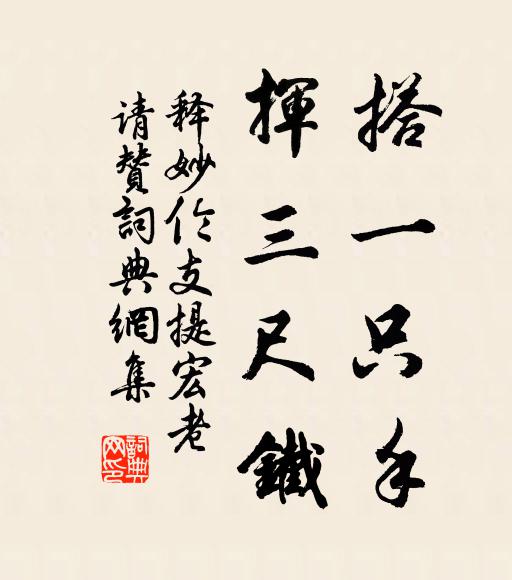 搭一只手
揮三尺鐵
释妙伦支提宏老
请赞詞典網集
詞典网印